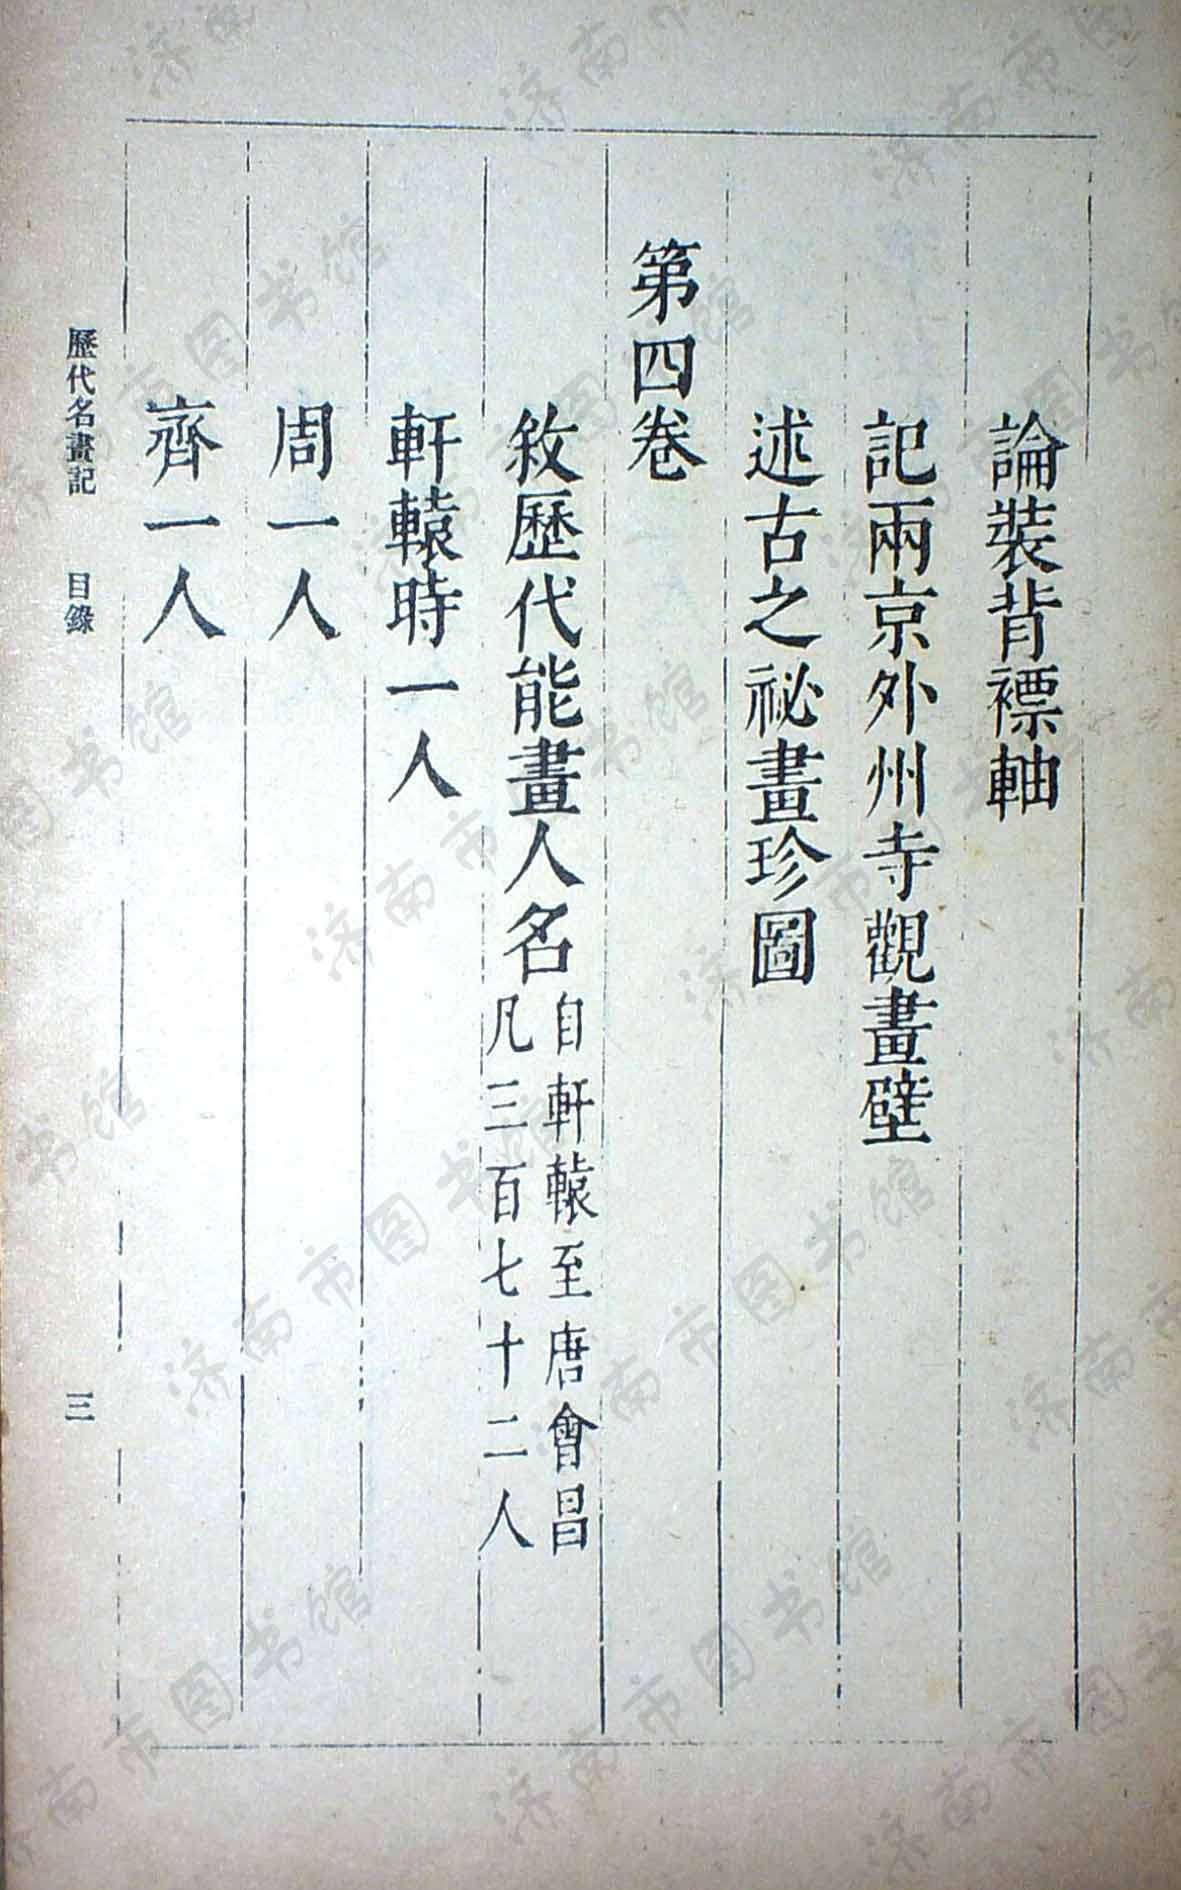 論裝背褾軸
記兩京外州寺觀畫壁
述古之祕畫珍圖
第四卷
敘歷代能畫人名
自軒轅至唐會昌
凡三百七十二人
軒轅時一人
周一人
齊一人
歷代名畫記 目錄 三
济南市图书馆